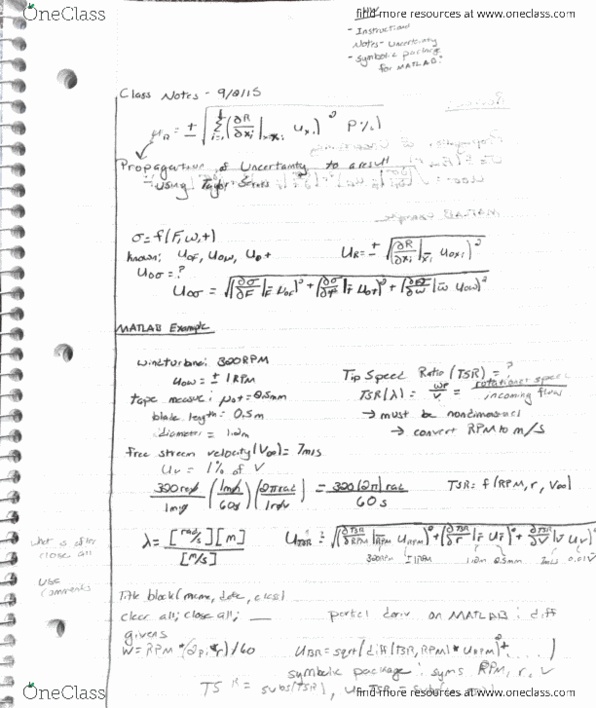 OneClass
find more resources at www.oneclass.com
- Instructional
Notes - Uncertainty
- symbolic package
for MATLAB?
Class Notes - 9/2/15
u_R = ± √[ Σ_{i=1} (∂R/∂x_i |_{x=x_i} u_{x_i})² ] P%)
Propagation of Uncertainty to a result
- using Taylor Series
σ = f(F, w, t)
known: u_0F, u_0w, u_0t
u_R = ± √(∂R/∂x_i |_{x_i} u_{0x_i})²
u_0σ = ?
u_0σ = √[(∂σ/∂F |_F u_0F)² + (∂σ/∂t |_t u_0t)² + (∂σ/∂w |_w u_0w)²]
MATLAB Example
wind turbine: 320 RPM
u_0w = ± 1 RPM
tape measure: u_0t = 0.5mm
blade length = 0.5m
diameter = 1.2m
free stream velocity (V∞) = 7m/s
u_v = 1% of V
Tip Speed Ratio (TSR) = ?
TSR(λ) = wr/v = rotational speed / incoming flow
→ must be nondimensional
→ convert RPM to m/s
320 rev/1min (1min/60s) (2π rad/1rev) = 320(2π) rad / 60s
TSR = f(RPM, r, V∞)
λ = [rad/s][m] / [m/s]
u_TSR = √[(∂TSR/∂RPM |_RPM u_RPM)² + (∂TSR/∂r |_r u_r)² + (∂TSR/∂V |_v u_v)²
320RPM ±1RPM 0.5mm 7m/s 0.01V
close all
use
comments
Title block (name, date, class)
clear all; close all;
givens
w = RPM*(2pi*r)/60
partial deriv on MATLAB: diff
u_TSR = sqrt(diff(TSR, RPM)*u_RPM)² + ....)
symbolic package: syms RPM, r, v
TSR = subs(TSR),
OneClass
find more resources at www.oneclass.com